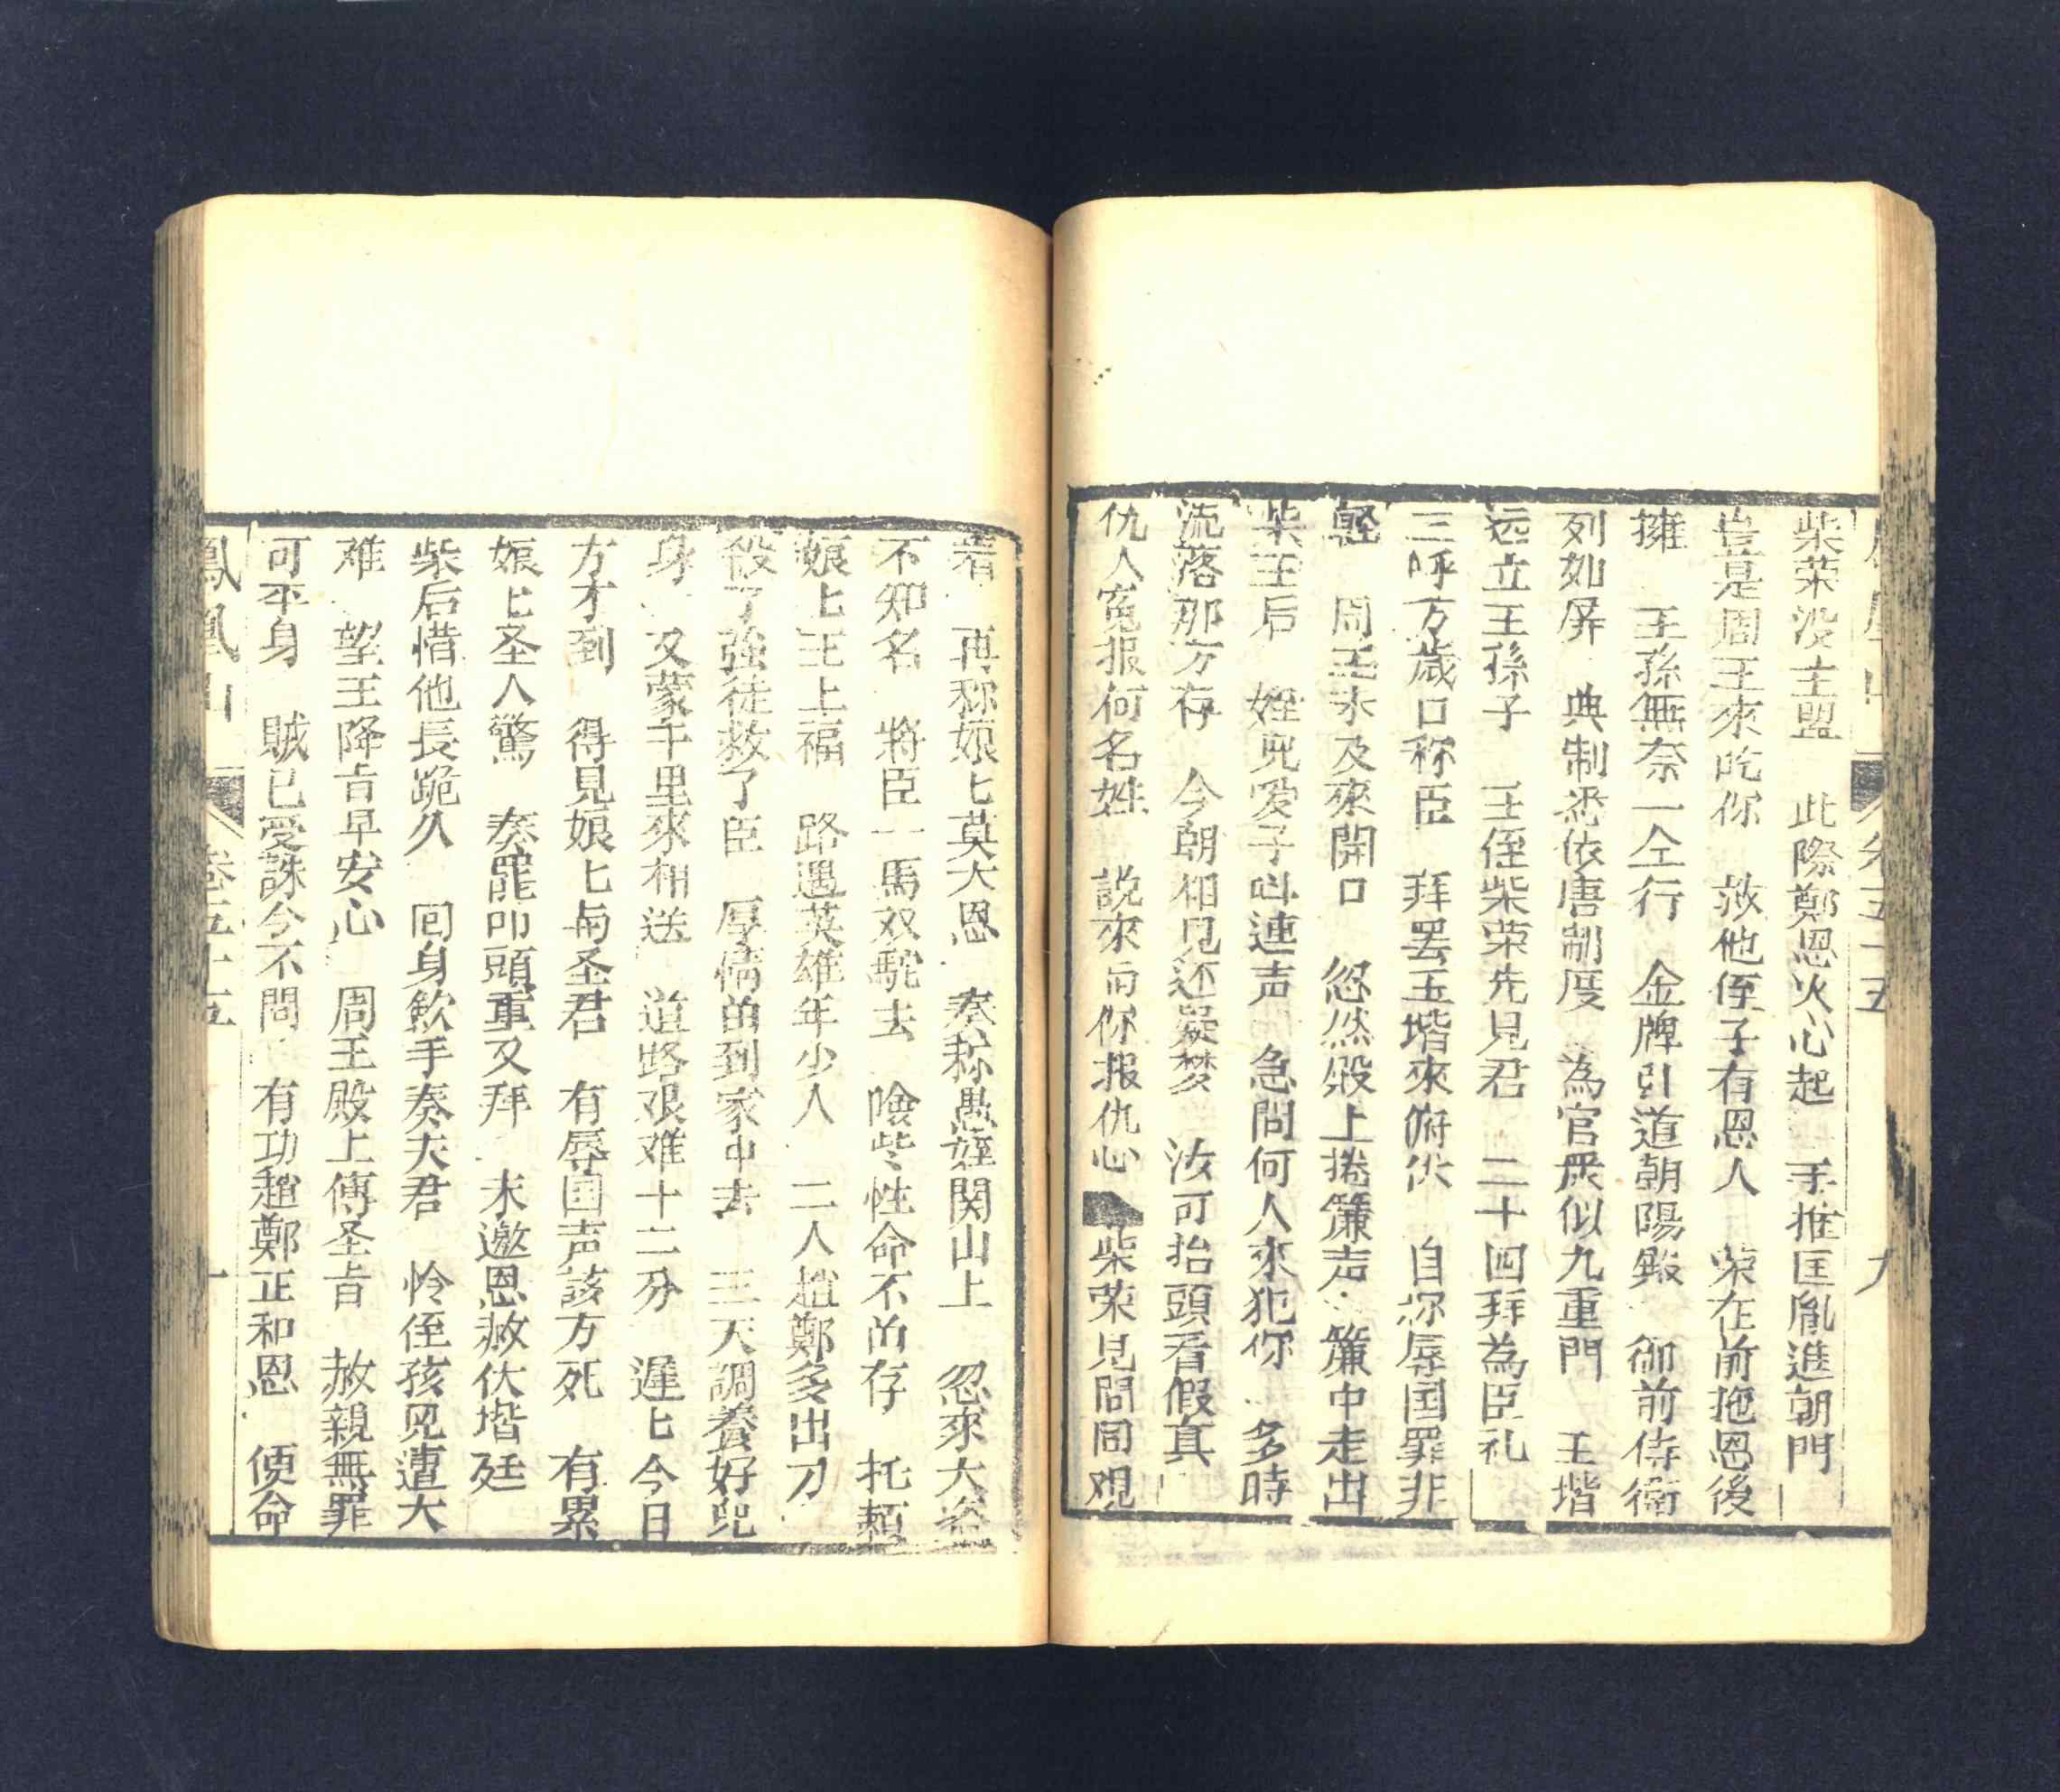 柴荣没主盟　此際鄭恩火心起　手推匡胤進朝門
豈是周王來吃你　放他侄子有恩人　荣在前拖恩後
擁　王孫無奈一仝行　金牌引道朝陽殿　御前侍衛
列如屏　典制悉依唐制度　為官衆似九重門　王堦
远立王孫子　王侄柴荣先見君　二十四拜為臣礼
三呼万歳口称臣　拜罢玉堦來俯伏　自称辱国罪非
輕　周王未及來開口　忽然殿上捲簾声　簾中走出
柴王后　姪児爱子叫連声　急問何人來犯你　多時
流落那方存　今朝相見还疑梦　汝可抬頭看假真
仇人寃报何名姓　說來而你报仇心　柴荣見問同观
着　再称娘匕莫大恩　奏称愚姪関山上　忽來大盗
不知名　將臣一馬双駝去　險些性命不苗存　托頼
娘上王上福　路遇英雄年少人　二人趙鄭多出刀
殺了強徒救了臣　厚情苗到家中去　三天調養好児
身　又蒙千里來相送　道路艰难十二分　遲匕今日
方才到　得見娘匕与圣君　有辱国声該万死　有累
娘匕圣人驚　奏罷叩頭重又拜　未邀恩赦伏堦廷
柴后惜他長跪久　回身歛手奏夫君　怜侄孩児遭大
难　望王降旨早安心　周王殿上傳圣旨　赦親無罪
可平身　賊已受誅今不問　有功趙鄭正和恩　便命
鳳凰山　卷五十五